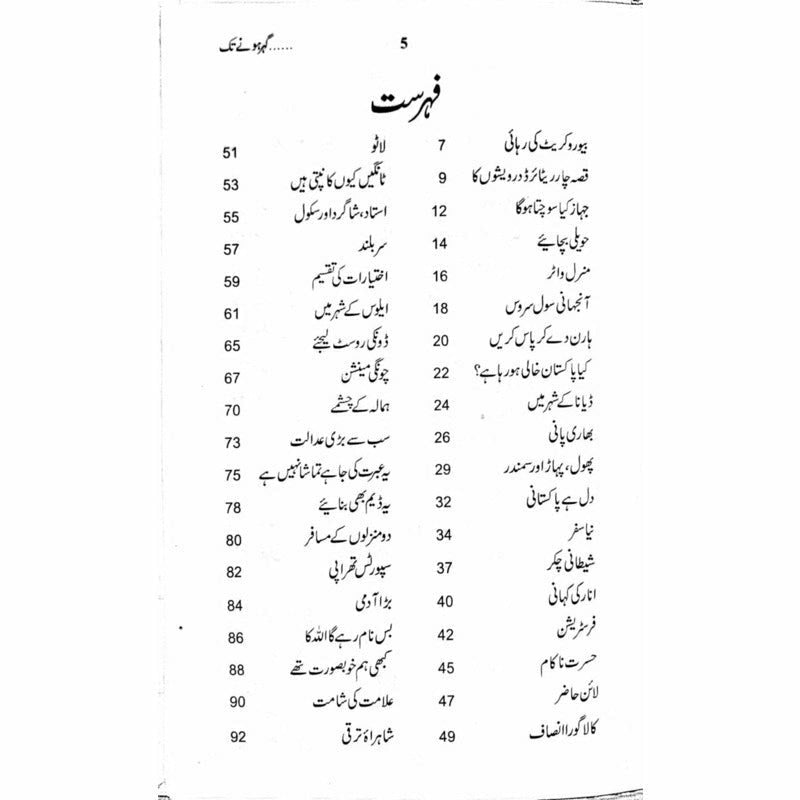 گہر ہونے تک...... 5
فہرست
بیوروکریٹ کی رہائی 7
قصہ چار ریٹائرڈ درویشوں کا 9
جہاز کیا سوچتا ہوگا 12
حویلی بچائیے 14
منرل واٹر 16
آنجہانی سول سروس 18
ہارن دے کر پاس کریں 20
کیا پاکستان خالی ہو رہا ہے؟ 22
ڈیانا کے شہر میں 24
بھاری پانی 26
پھول، پہاڑ اور سمندر 29
دل ہے پاکستانی 32
نیا سفر 34
شیطانی چکر 37
انار کی کہانی 40
فرسٹریشن 42
حسرت ناکام 45
لائن حاضر 47
کالا گورا انصاف 49
لاٹو 51
ٹانگیں کیوں کانپتی ہیں 53
استاد، شاگرد اور سکول 55
سر بلند 57
اختیارات کی تقسیم 59
ایلوس کے شہر میں 61
ڈونکی روسٹ لیجئے 65
چونگی مینشن 67
ہمالہ کے چشمے 70
سب سے بڑی عدالت 73
یہ عبرت کی جا ہے تماشا نہیں ہے 75
یہ ڈیم بھی بنائیے 78
دو منزلوں کے مسافر 80
سپورٹس تھراپی 82
بڑا آدمی 84
بس نام رہے گا اللہ کا 86
کبھی ہم خوبصورت تھے 88
علامت کی شامت 90
شاہراۂ ترقی 92